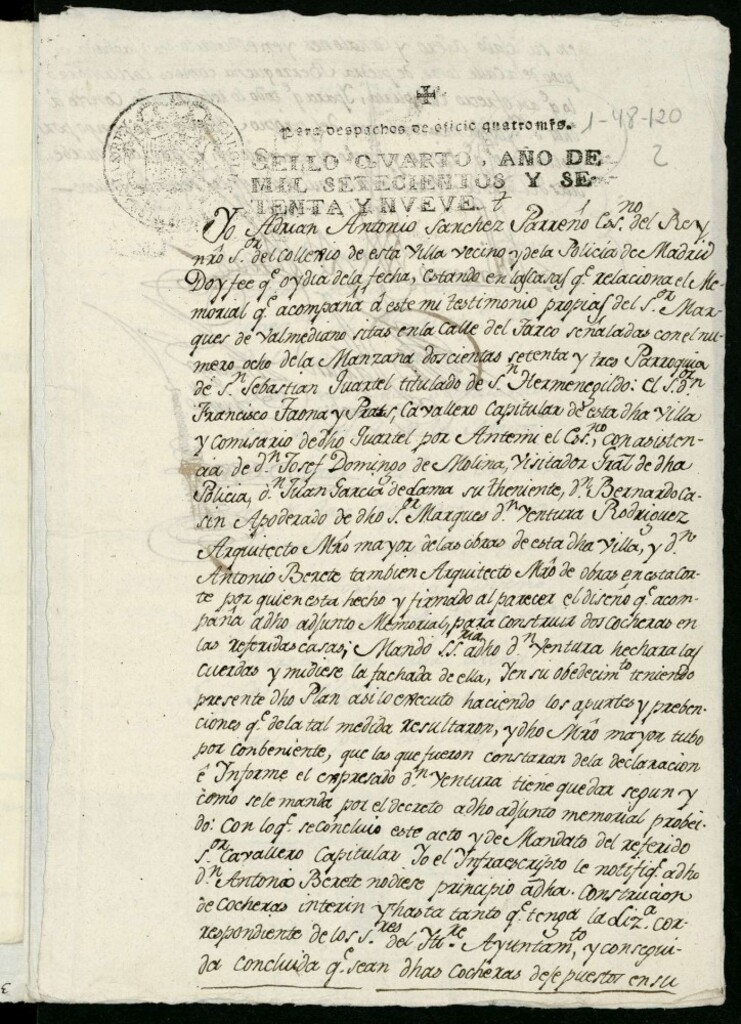 +
1-48-120
2
Para despachos de oficio quatro mrs.
SELLO QVARTO, AÑO DE
MIL SETECIENTOS Y SE-
TENTA Y NVEVE.
Yo Adrian Antonio Sanchez Parreño Essno. del Rey
nrô Sor. del Collexio de esta Villa vecino y de la Policia de Madrid
Doy fee qe. oy dia dela fecha, estando en las casas qe. relaciona el Me-
morial qe. acompaña á este mi testimonio propias del Sor. Mar-
ques de Valmediano sitas en la Calle del Turco señaladas con el nu-
mero ocho de la Manzana doscientas setenta y tres Parroquia
de Sn. Sebastian Quartel titulado de Sn. Hermenegildo: el Sor. Dn.
Francisco Prats, Cavallero Capitular de esta dha Villa
y Comisario de dho Quartel por Antemi el Essno., con asisten-
cia de dn. Josef Domingo de Molina, Visitador Gràl de dha
Policia, dn. Juan Garcia de Lama su theniente, dn. Bernardo Ca-
sin Apoderado de dho Sor. Marques dn. Ventura Rodriguez
Arquitecto Mrô mayor delas obras de esta dha Villa, y dn.
Antonio Berete tambien Arquitecto Mrô de obras en esta Cor-
te por quien esta hecho y firmado al parecer el diseño qe. acom-
paña adho adjunto Memorial, para construir dos cocheras en
las referidas casas; Mandó S.Sria. adho dn. Ventura hechara las
cuerdas y midiese la fachada de ella, Y en su obedecimto. teniendo
presente dho Plan asi lo executo haciendo los apuntes y preben-
ciones qe. de la tal medida resultaron, y dho Mrô mayor tubo
por combeniente, que las que fueron constaran dela declaracion
é Informe el expresado dn. Ventura tiene que dar segun y
como sele manda por el decreto adho adjunto memorial probei-
do: Con lo qe. se concluio este acto y de Mandato del referido
Sor. Cavallero Capitular Yo el Ynfraescripto le notifiqe. adho
dn. Antonio Berete no diese principio adha. Construcion
de cocheras interin y hasta tanto qe. tenga la Liza. cor-
respondiente de los Sres. del Ytre. Ayuntamto., y consegui-
da concluida qe. sean dhas cocheras deje puestos en su